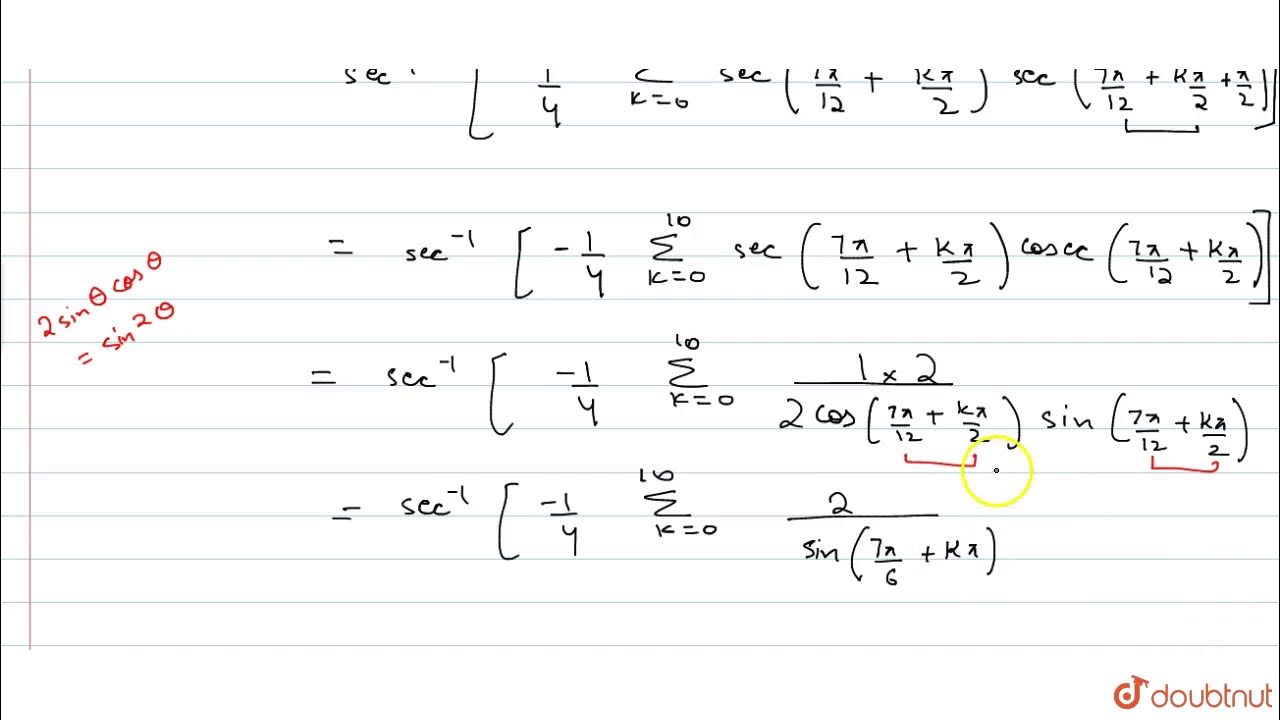 sec⁻¹ [ 1/4 Σ K=0 sec (7π/12 + Kπ/2) sec (7π/12 + Kπ/2 + π/2)]
= sec⁻¹ [ -1/4 Σ_{K=0}^{10} sec (7π/12 + Kπ/2) cosec (7π/12 + Kπ/2)]
2 sin θ cos θ
= sin 2θ
= sec⁻¹ [ -1/4 Σ_{K=0}^{10} 1 × 2 / 2 cos (7π/12 + Kπ/2) sin (7π/12 + Kπ/2)
= sec⁻¹ [ -1/4 Σ_{K=0}^{10} 2 / sin (7π/6 + Kπ)
doubtnut